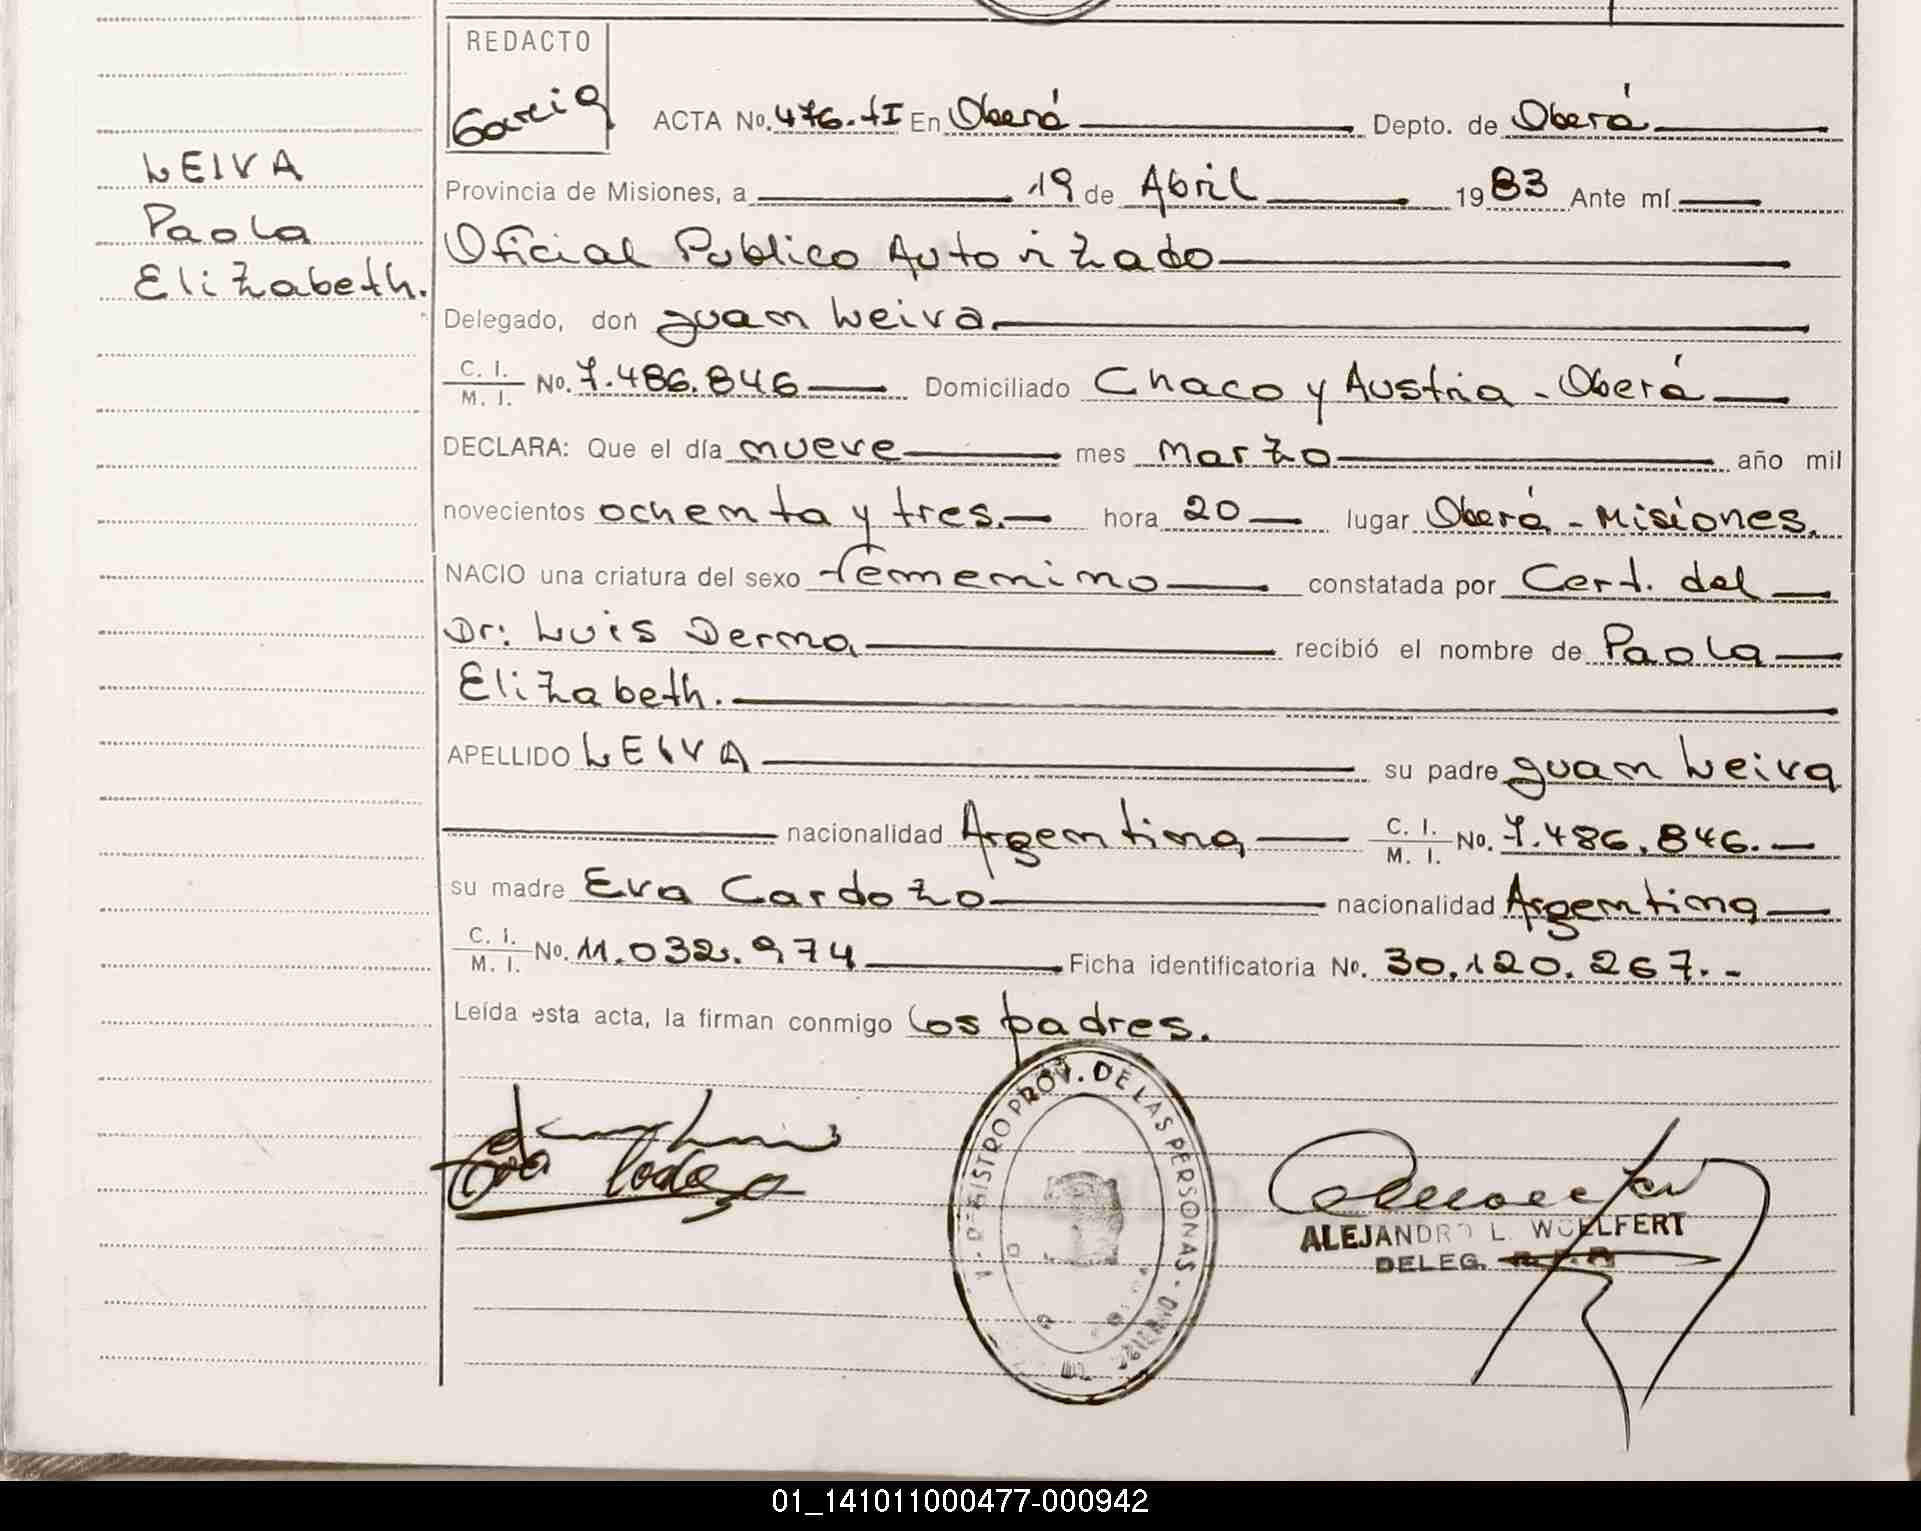 REDACTO
Garcia
ACTA No. 476.tI En Oberá Depto. de Oberá
LEIVA
Paola
Elizabeth.
Provincia de Misiones, a 19 de Abril 1983 Ante mí
Oficial Publico Autorizado
Delegado, don Juan Leiva
C. I. / M. I. No. 7.486.846 Domiciliado Chaco y Austria - Oberá
DECLARA: Que el día nueve mes marzo año mil
novecientos ochenta y tres. hora 20 lugar Oberá - Misiones.
NACIO una criatura del sexo femenino constatada por Cert. del
Dr: Luis Derna recibió el nombre de Paola
Elizabeth.
APELLIDO LEIVA su padre Juan Leiva
nacionalidad Argentina C. I. / M. I. No. 7.486.846.
su madre Eva Cardozo nacionalidad Argentina
C. I. / M. I. No. 11.032.974 Ficha identificatoria No. 30.120.267.-
Leída esta acta, la firman conmigo los padres.
REGISTRO PROV. DE LAS PERSONAS
ALEJANDRO L. WOELFERT
DELEG.
01_141011000477-000942